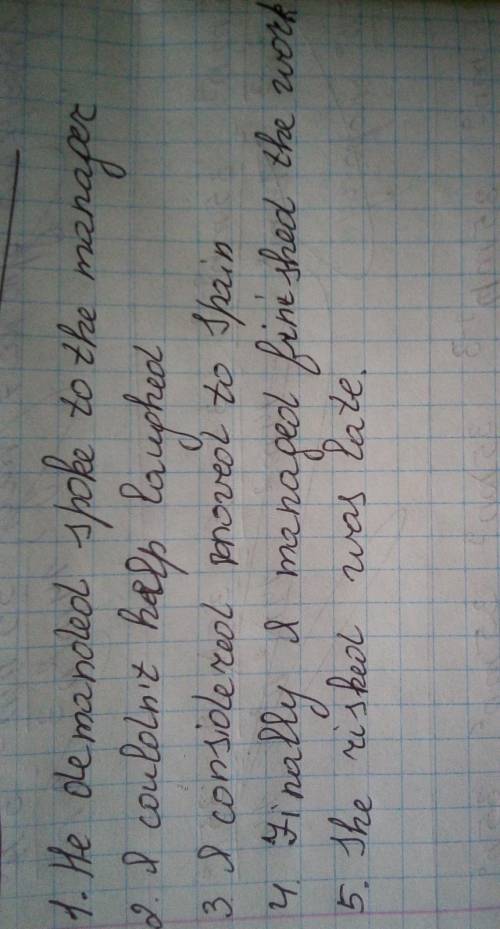 1. He demanded spoke to the manager
2. I couldn't help laughed
3 I considered moved to spain
4. Finally I managed finished the work
5. she risked was late.